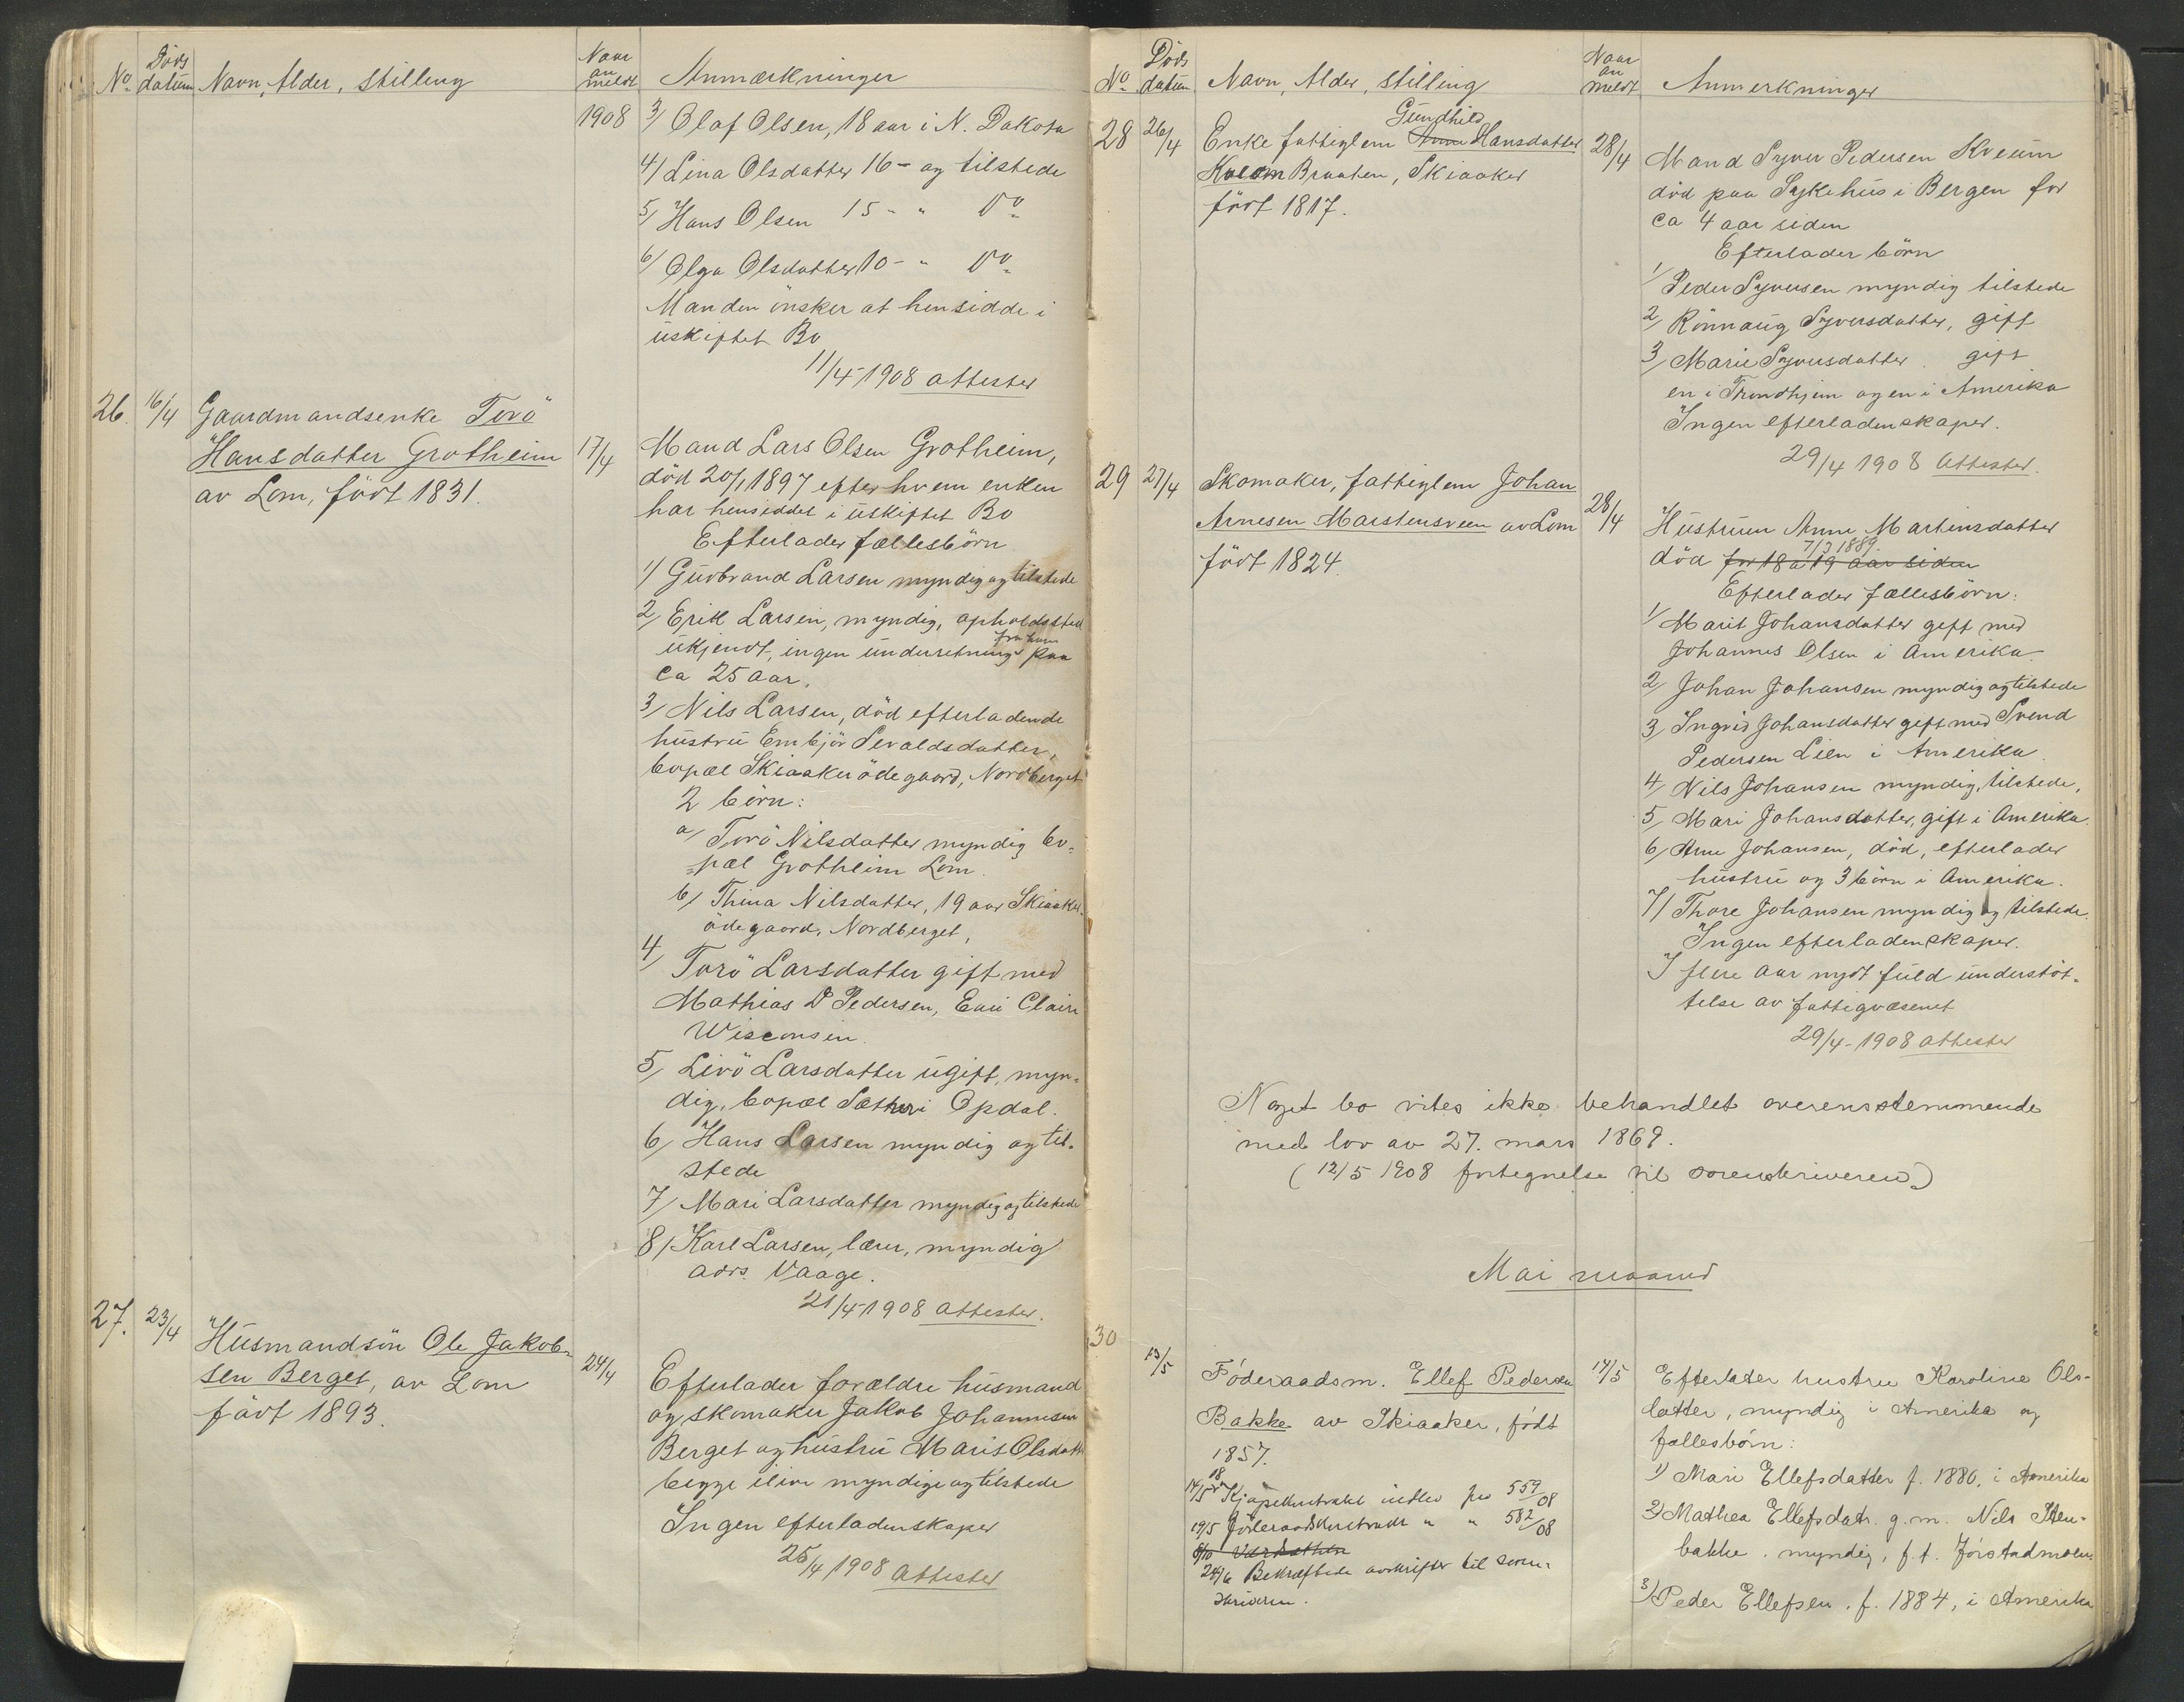 No. Døds datum Navn, Alder, Stilling Naar anmeldt Anmærkninger
1908 3/ Olaf Olsen, 18 aar i N. Dakota
4/ Lina Olsdatter 16 – og tilstede
5/ Hans Olsen 15 - " Do
6/ Olga Olsdatter 10 - " Do
Manden ønsker at hensidde i
uskiftet Bo
11/4-1908 attester
26. 16/4 Gaardmandsenke Torø
Hansdatter Grotheim
av Lom, født 1831.
17/4 Mand Lars Olsen Grotheim,
død 20/1 1897 efter hvem enken
har hensiddet i uskiftet Bo
Efterlader fællesbørn
1/ Gudbrand Larsen myndig og tilstede
2/ Erik Larsen, myndig, opholdssted
ukjendt, ingen underretning fra ham paa
ca 25 aar.
3/ Nils Larsen, død efterladende
hustru Embjør Sevaldsdatter,
bopæl Skiaaker ødegaard, Nordberget
2 børn:
a/ Torø Nilsdatter myndig bo-
pæl Grotheim Lom.
b/ Thina Nilsdatter, 19 aar Skiaaker
ødegaard, Nordberget,
4/ Torø Larsdatter gift med
Mathias D Pedersen, Eau Claire
Wisconsin.
5/ Livø Larsdatter ugift, myn-
dig, bopæl Sæther i Opdal.
6/ Hans Larsen myndig og til-
stede
7/ Mari Larsdatter myndig og tilstede
8/ Karl Larsen, lærer, myndig
adrs. Vaage.
21/4-1908 attester.
27. 23/4 Husmandsøn Ole Jakob-
sen Berget, av Lom
født 1893.
24/4 Efterlader forældre husmand
og skomaker Jakob Johannesen
Berget og hustru Marit Olsdatt
begge ilive myndige og tilstede
Ingen efterladenskaper
25/4 1908 attester
No. Døds datum Navn, Alder, stilling Naar anmeldt Anmerkninger
28 26/4 Enke fattiglem Anne Gundhild Hansdatter
Kveom Braaten, Skiaaker
født 1817.
28/4 Mand Syver Pedersen Kveum
død paa Sykehus i Bergen for
ca 4 aar siden
Efterlader børn
1/ Peder Syversen myndig tilstede
2/ Rønnaug Syversdatter, gift
3/ Marie Syversdatter. gift
en i Trondhjem og en i Amerika
Ingen efterladenskaper.
29/4 1908 attester.
29 27/4 Skomaker, fattiglem Johan
Arnesen Marstensveen av Lom
født 1824.
28/4 Hustruen Anne Martinsdatter
død for 18 a 19 aar siden 7/3 1889.
Efterlader fællesbørn:
1/ Marit Johansdatter gift med
Johannes Olsen i Amerika.
2/ Johan Johansen myndig og tilstede
3/ Ingrid Johansdatter gift med Svend
Pedersen Lien i Amerika.
4/ Nils Johansen myndig, tilstede,
5/ Mari Johansdatter, gift i Amerika.
6/ Arne Johansen, død, efterlader
hustru og 3 børn i Amerika.
7/ Thore Johansen myndig og tilstede.
Ingen efterladenskaper.
I flere aar nydt fuld understøt-
telse av fattigvæsenet
29/4-1908 attester
Noget bo vites ikke behandlet overensstemmende
med lov av 27. mars 1869.
(12/5 1908 fortegnelse til sorenskriveren)
Mai maaned
30 13/5 Føderaadsm. Ellef Pedersen
Bakke av Skiaaker, født
1857.
14/5 08 Kjøpekontrakt indlev for 559/08
19/5 Føderaadskontrakt " " 582/08
24/6 Bekræftede avskrifter til soren-
skriveren.
14/5 Efterlater hustru Karoline Ols-
datter, myndig i Amerika og
fællesbørn:
1) Mari Ellefsdatter f. 1880, i Amerika
2) Mathea Ellefsdatr. g.m. Nils Sten-
bakke. myndig, f.t. Jørstadmoen
3) Peder Ellefsen. f. 1884, i Amerika